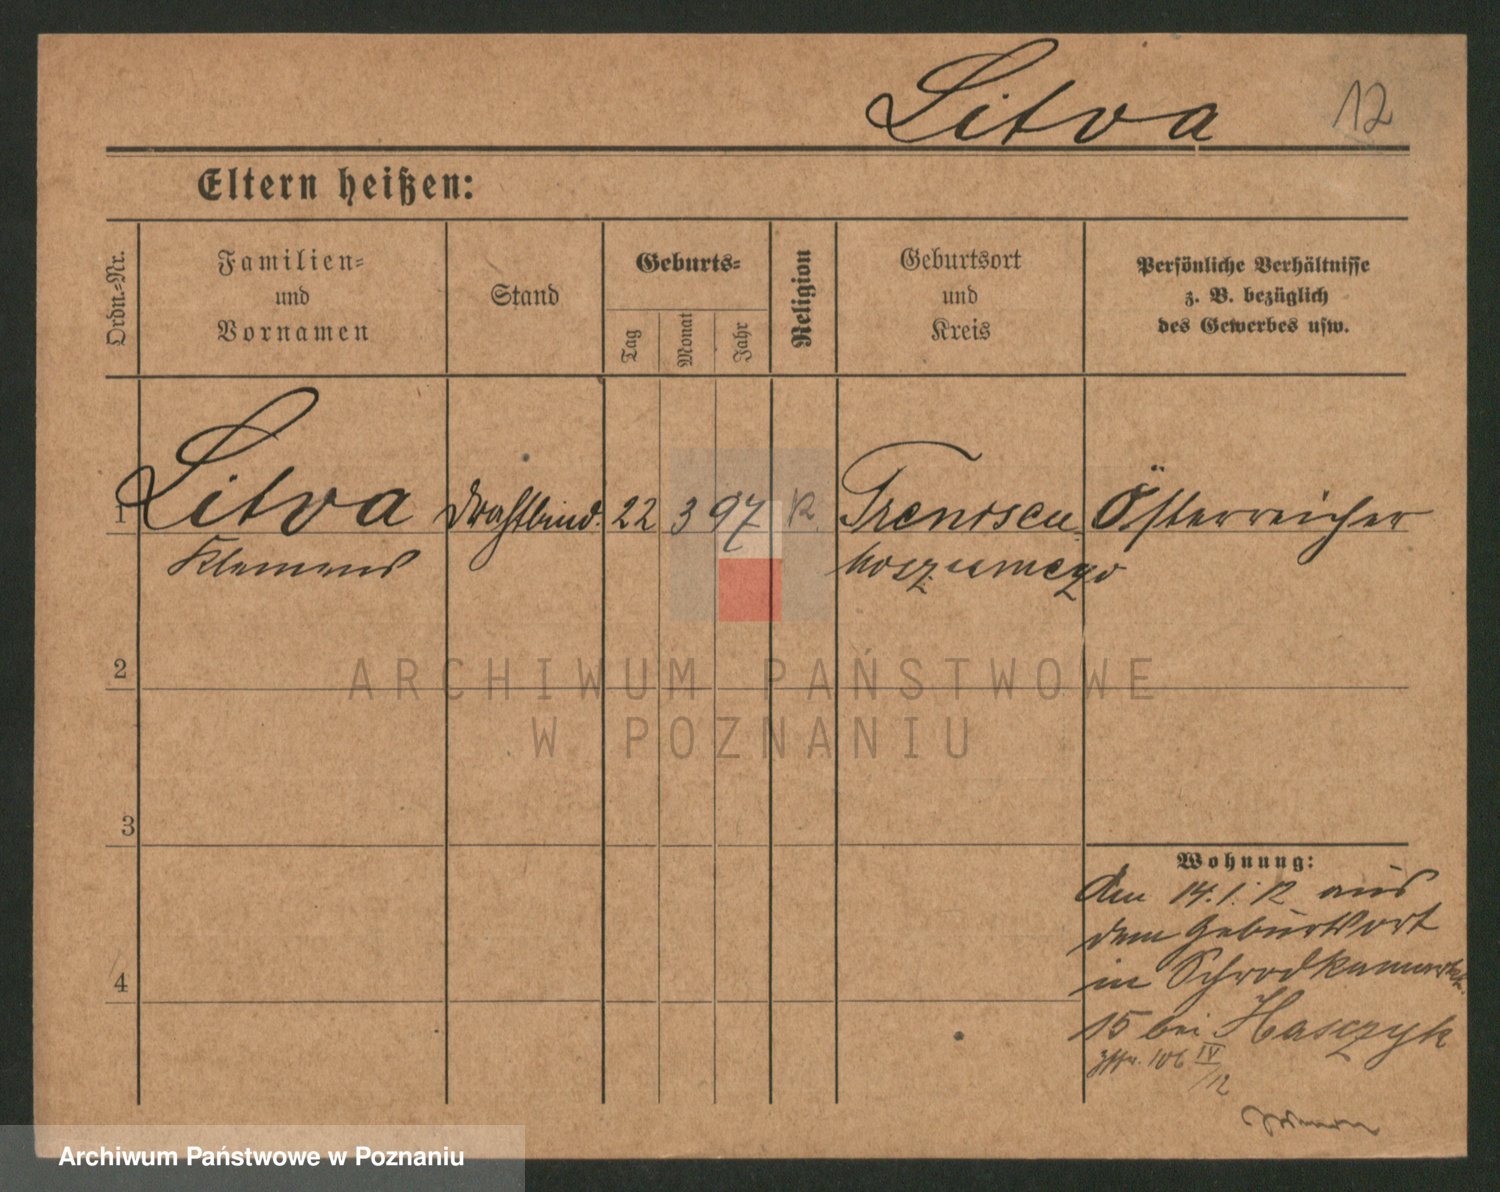 Litva
12
Eltern heißen:
Ordn.-Nr.
Familien- und Vornamen
Stand
Geburts-
Tag
Monat
Jahr
Religion
Geburtsort und Kreis
Persönliche Verhältnisse z. B. bezüglich des Gewerbes usw.
1 Litva Drahtbind. 22 3 97 K. Österreicher
Klemens
ARCHIWUM PAŃSTWOWE
W POZNANIU
2
3
4
Wohnung:
Am 14.1.12 aus
dem Geburtsort
in
15 bei Hasczyk
106 IV/12
Archiwum Państwowe w Poznaniu